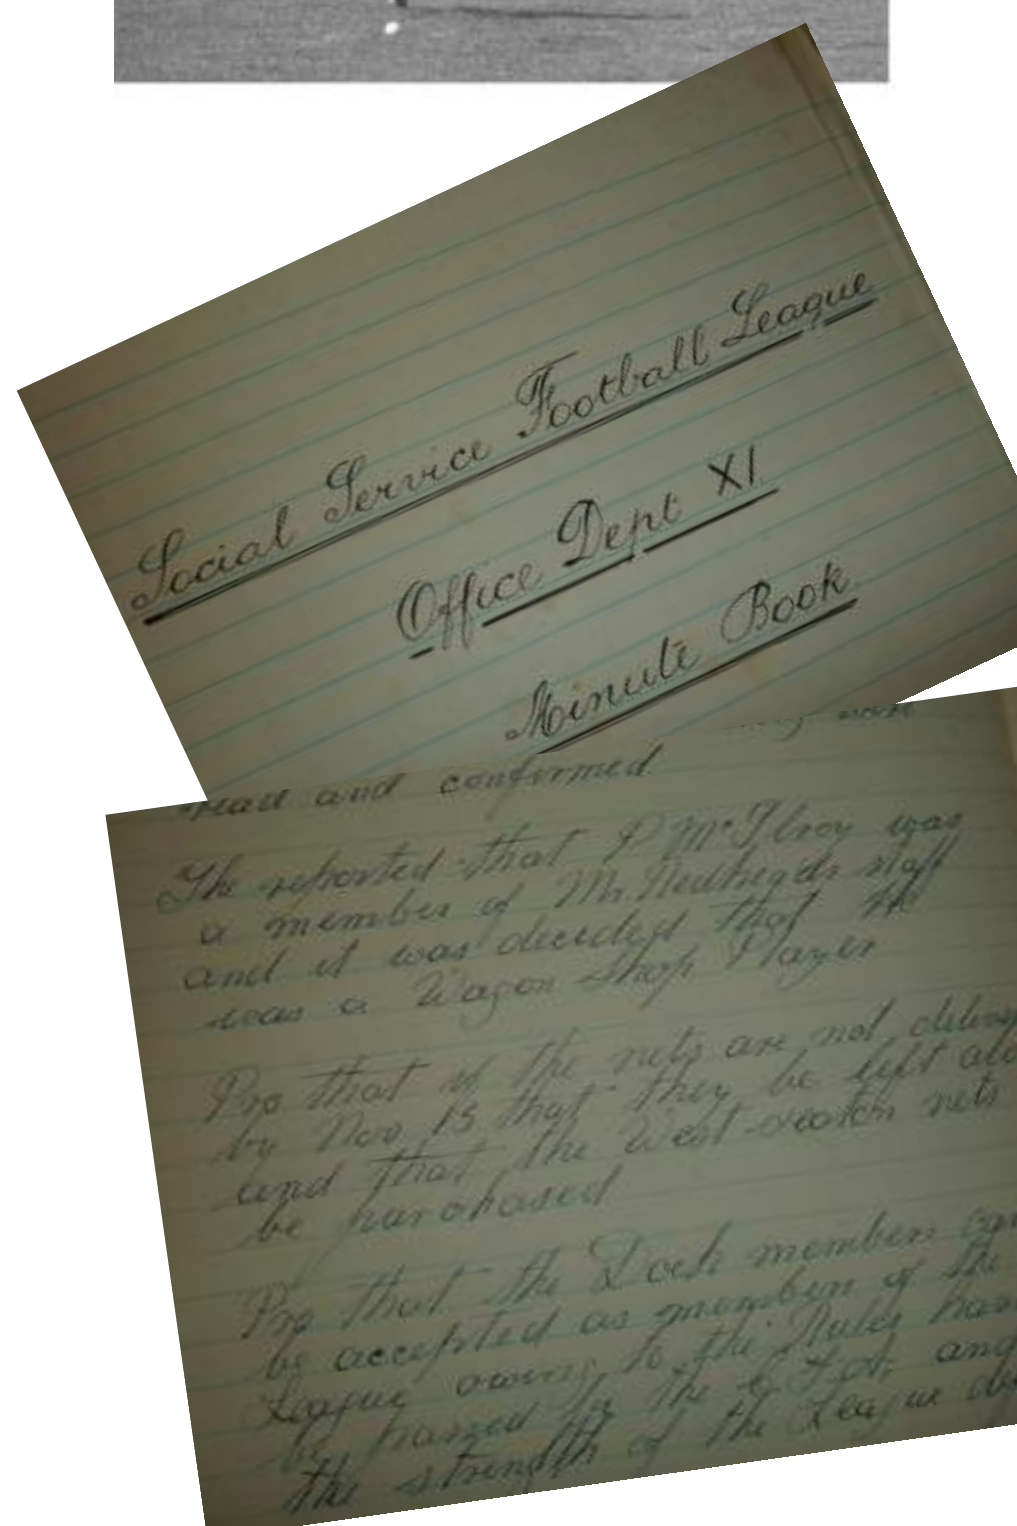 Social Service Football League
Office Dept XI.
Minute Book
read and confirmed.
The reported that P McIlroy was
a member of Mr. staff
and it was decided that he
was a Wagon Shop Player
Pro that if the nets are not
by Nov 15 that they be left
and that the nets
be purchased
Pro that the Dock members
be accepted as members of the
League owing to the Rules
by passed by the and
the strength of the League